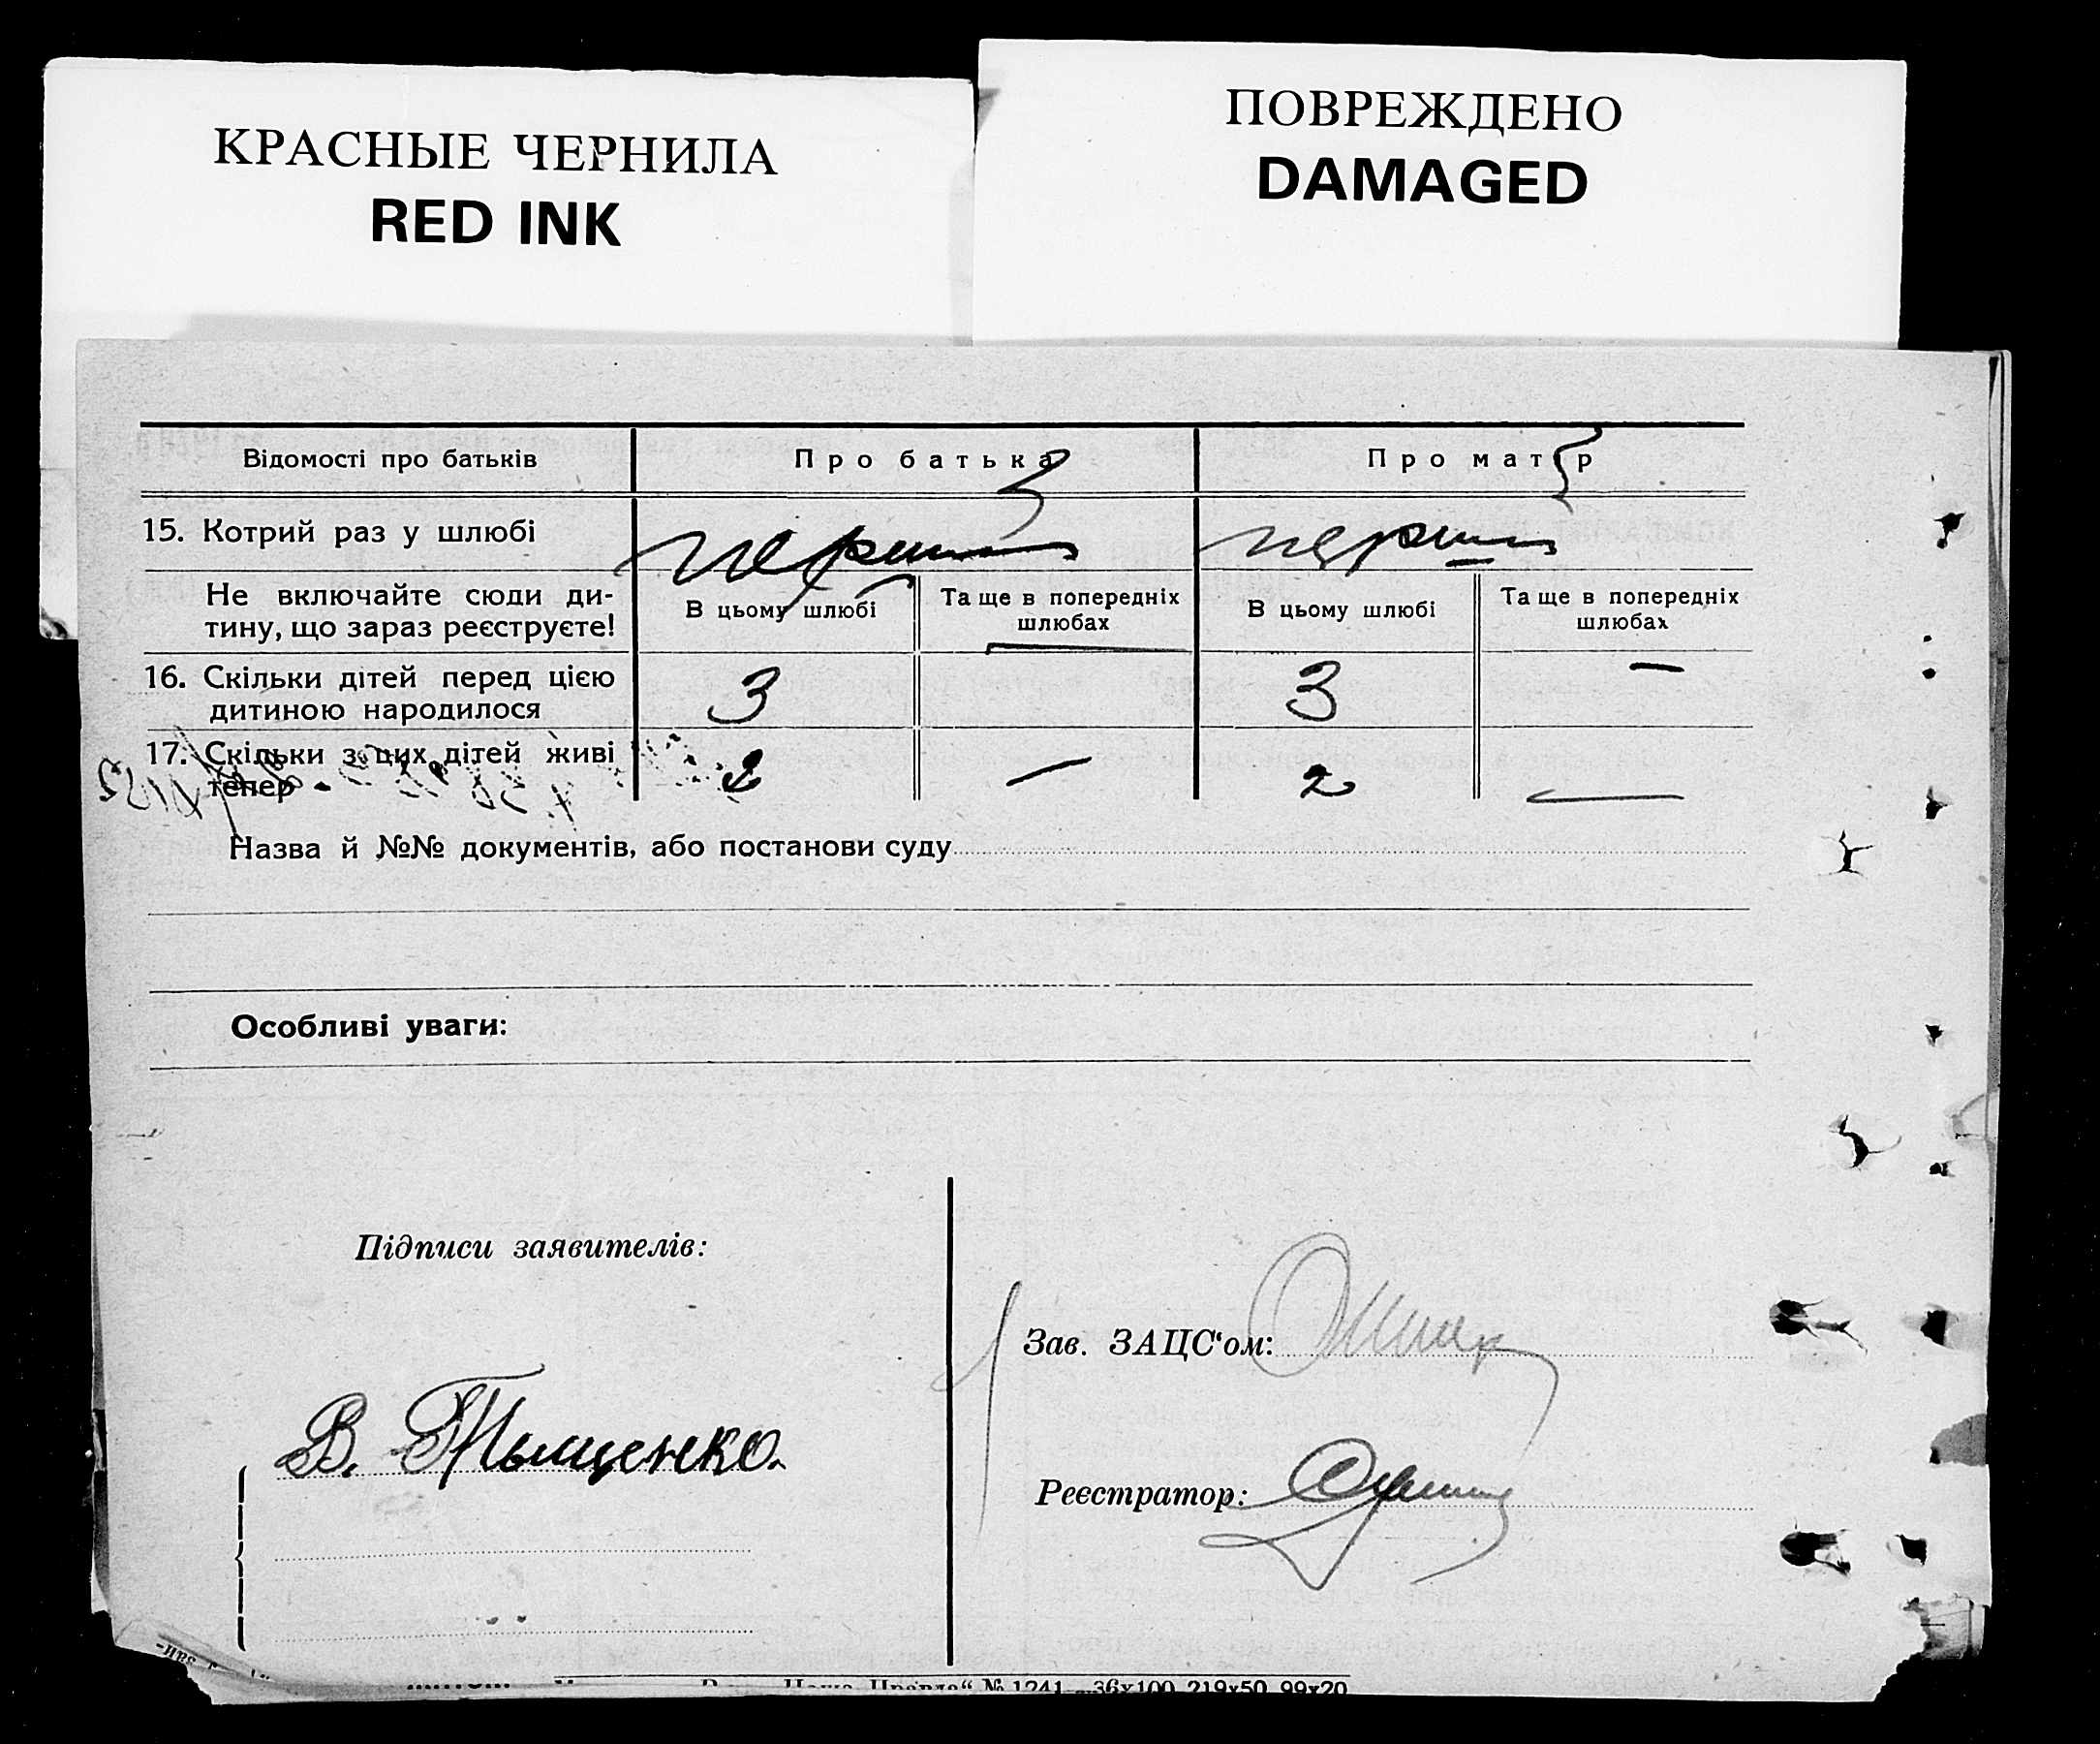 КРАСНЫЕ ЧЕРНИЛА
RED INK
ПОВРЕЖДЕНО
DAMAGED
Відомості про батьків
Про батька
Про матір
15. Котрий раз у шлюбі
перший
перший
Не включайте сюди ди-
тину, що зараз реєструєте!
В цьому шлюбі
Та ще в попередніх
шлюбах
В цьому шлюбі
Та ще в попередніх
шлюбах
16. Скільки дітей перед цією
дитиною народилося
3
3
—
17. Скільки з цих дітей живі
тепер
2
—
2
—
Назва й №№ документів, або постанови суду
Особливі уваги:
Підписи заявителів:
В. Тыщенко.
Зав. ЗАЦС‘ом:
Реєстратор:
Правда“ № 1241 36х100 219х50 99х20